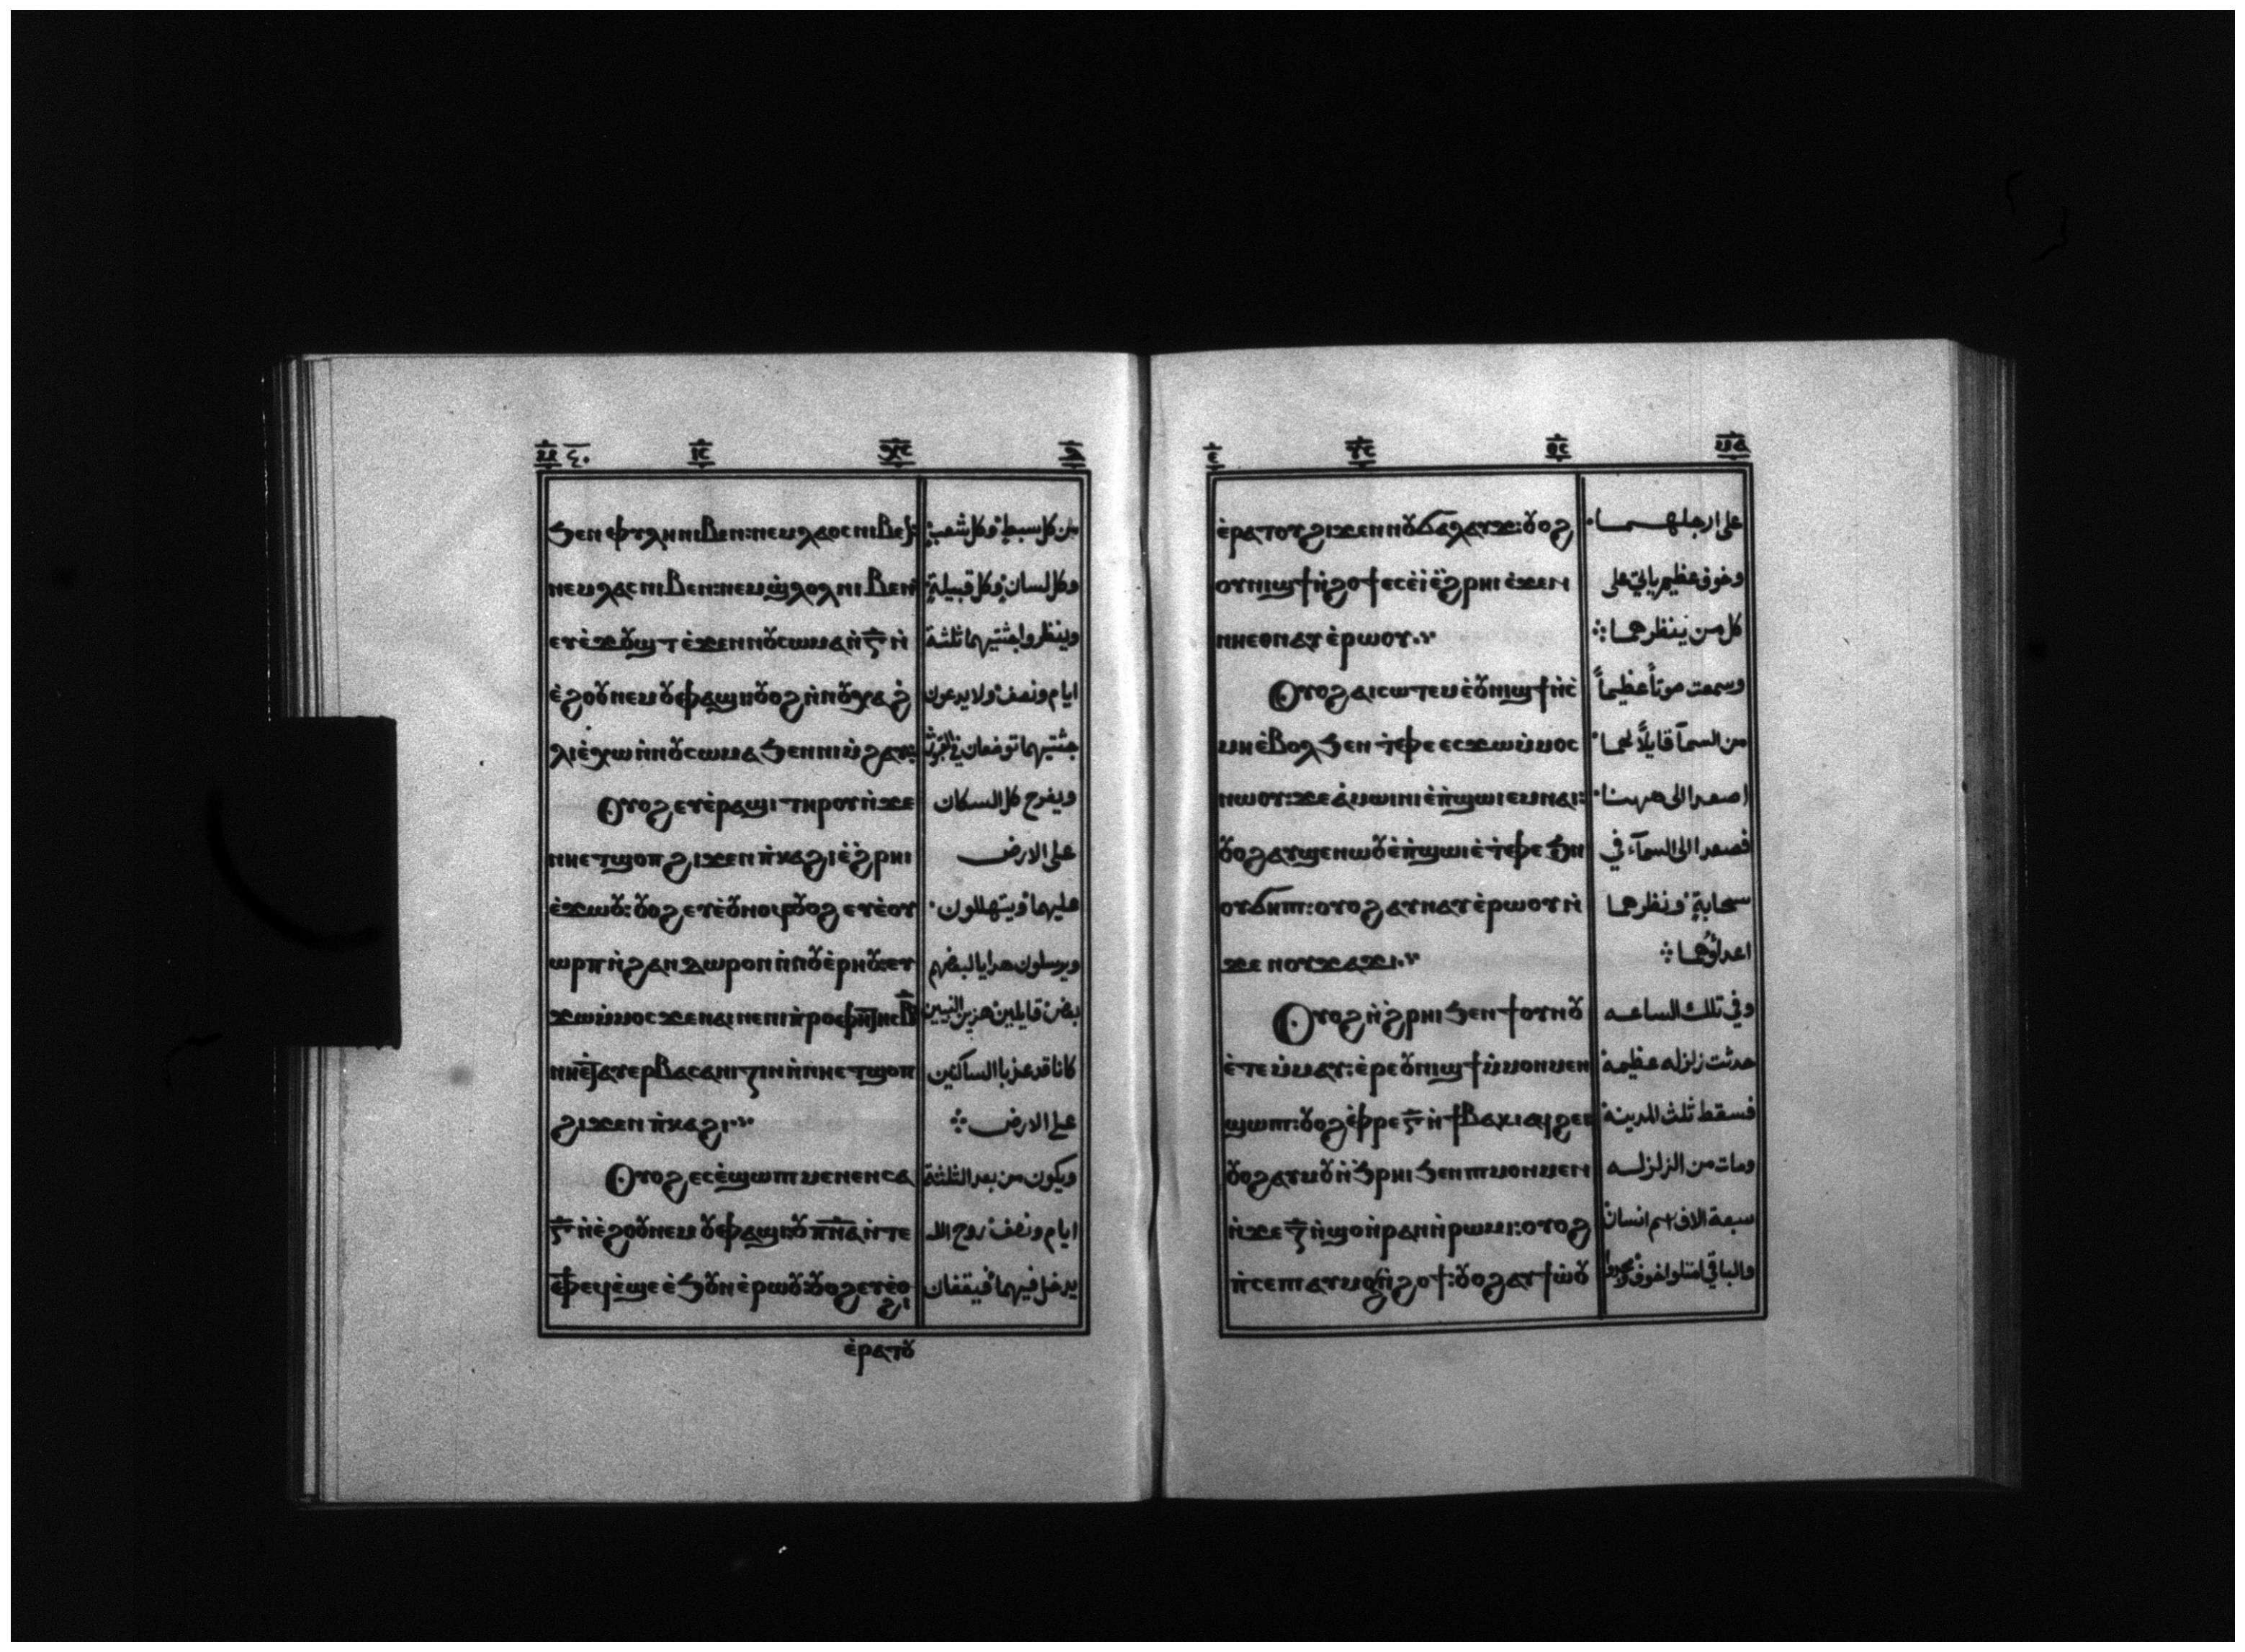 ϧⲉⲛ ⲫⲩⲗⲏ ⲛⲓⲃⲉⲛ: ⲛⲉⲙ ⲗⲁⲟⲥ ⲛⲓⲃⲉⲛ:
من كل سبط وكل شعب
ⲛⲉⲙ ⲗⲁⲥ ⲛⲓⲃⲉⲛ: ⲛⲉⲙ ϣ̀ⲗⲟⲗ ⲛⲓⲃⲉⲛ
وكل لسان وكل قبيلة
ⲉⲩⲉ̀ϫⲟⲩϣⲧ ⲉ̀ϫⲉⲛ ⲛⲟⲩⲥⲱⲙⲁ ⲛ̀ⲅ̅ ⲛ̀
وينظروا جثتيهما ثلثة
ⲉ̀ϩⲟⲟⲩ ⲛⲉⲙ ⲟⲩⲫⲁϣⲓ ⲟⲩⲟϩ ⲛ̀ⲛⲟⲩⲭⲁ ϩ̀
ايام ونصف ولا يدعون
ⲗⲓ ⲉ̀ⲭⲱ ⲛ̀ⲛⲟⲩⲥⲱⲙⲁ ϧⲉⲛ ⲛⲓⲙ̀ϩⲁⲩ:
جثتيهما توضعان في القبور
Ⲟⲩⲟϩ ⲉⲩⲉ̀ⲣⲁϣⲓ ⲧⲏⲣⲟⲩ ⲛ̀ϫⲉ
ويفرح كل السكان
ⲛⲏ ⲉⲧϣⲟⲡ ϩⲓϫⲉⲛ ⲡ̀ⲕⲁϩⲓ ⲉ̀ϩ̀ⲣⲏⲓ
على الارض
ⲉ̀ϫⲱⲟⲩ: ⲟⲩⲟϩ ⲉⲩⲉ̀ⲟⲩⲛⲟϥ ⲟⲩⲟϩ ⲉⲩⲉ̀ⲟⲩ
عليهما ويتهللون
ⲱⲣⲡ ⲛ̀ϩⲁⲛⲇⲱⲣⲟⲛ ⲛ̀ⲛⲟⲩⲉ̀ⲣⲏⲟⲩ: ⲉⲩ
ويرسلون هدايا لبعضهم
ϫⲱ ⲙ̀ⲙⲟⲥ ϫⲉ ⲛⲁⲓ ⲛⲉ ⲡⲓⲡ̀ⲣⲟⲫⲏⲧⲏⲥ ⲃ̅
بعض قايلين هذين النبيين
ⲛⲏ ⲉⲧⲁⲩⲉⲣⲃⲁⲥⲁⲛⲓⲍⲓⲛ ⲛ̀ⲛⲏ ⲉⲧϣⲟⲡ
كانا قد عذبا الساكنين
ϩⲓϫⲉⲛ ⲡ̀ⲕⲁϩⲓ.
على الارض
Ⲟⲩⲟϩ ⲉⲥⲉ̀ϣⲱⲡⲓ ⲙⲉⲛⲉⲛⲥⲁ
ويكون من بعد الثلثة
ⲅ̅ ⲛ̀ⲉ̀ϩⲟⲟⲩ ⲛⲉⲙ ⲟⲩⲫⲁϣⲓ: ⲟⲩⲡⲛ̅ⲁ̅ ⲛ̀ⲧⲉ
ايام ونصف روح الله
ⲫϯ ⲉϥⲉ̀ϣⲉ ⲉ̀ϧⲟⲩⲛ ⲉ̀ⲣⲱⲟⲩ: ⲟⲩⲟϩ ⲉⲩⲉ̀ⲟϩⲓ
يدخل فيهما فيقفان
ⲉ̀ⲣⲁⲧⲟⲩ
ⲉ̀ⲣⲁⲧⲟⲩ ϩⲓϫⲉⲛ ⲛⲟⲩϭⲁⲗⲁⲩϫ: ⲟⲩⲟϩ
على ارجلهما
ⲟⲩⲛⲓϣϯ ⲛ̀ϩⲟϯ ⲉⲥⲉ̀ⲓ̀ ⲉ̀ϩ̀ⲣⲏⲓ ⲉ̀ϫⲉⲛ
وخوف عظيم ياتي على
ⲛⲏ ⲉⲑⲛⲁⲩ ⲉ̀ⲣⲱⲟⲩ.
كل من ينظرهما
Ⲟⲩⲟϩ ⲁⲓⲥⲱⲧⲉⲙ ⲉ̀ⲟⲩⲛⲓϣϯ ⲛ̀ⲥ̀
وسمعت صوتاً عظيماً
ⲙⲏ ⲉ̀ⲃⲟⲗ ϧⲉⲛ ⲧ̀ⲫⲉ ⲉⲥϫⲱ ⲙ̀ⲙⲟⲥ
من السمآ قايلاً لهما
ⲛⲱⲟⲩ: ϫⲉ ⲁ̀ⲙⲱⲓⲛⲓ ⲉ̀ⲡ̀ϣⲱⲓ ⲉⲙⲛⲁⲓ:
اصعدا الى ههنا
ⲟⲩⲟϩ ⲁⲩϣⲉⲛⲱⲟⲩ ⲉ̀ⲡ̀ϣⲱⲓ ⲉ̀ⲧ̀ⲫⲉ ϧⲉⲛ
فصعدا الى السمآء في
ⲟⲩϭⲏⲡⲓ: ⲟⲩⲟϩ ⲁⲩⲛⲁⲩ ⲉ̀ⲣⲱⲟⲩ ⲛ̀
سحابة ونظرهما
ϫⲉ ⲛⲟⲩϫⲁϫⲓ.
اعداؤهما
Ⲟⲩⲟϩ ⲛ̀ϩ̀ⲣⲏⲓ ϧⲉⲛ ϯⲟⲩⲛⲟⲩ
وفي تلك الساعه
ⲉ̀ⲧⲉⲙ̀ⲙⲁⲩ: ⲉ̀ⲣⲉ ⲟⲩⲛⲓϣϯ ⲙ̀ⲙⲟⲛⲙⲉⲛ
حدثت زلزله عظيمة
ϣⲱⲡⲓ: ⲟⲩⲟϩ ⲉ̀ⲫⲣⲉⲅ̅ ⲛ̀ϯⲃⲁⲕⲓ ⲁϥϩⲉⲓ
فسقط ثلث المدينة
ⲟⲩⲟϩ ⲁⲩⲙⲟⲩ ⲛ̀ϧ̀ⲣⲏⲓ ϧⲉⲛ ⲡⲓⲙⲟⲛⲙⲉⲛ
ومات من الزلزله
ⲛ̀ϫⲉ ⲍ̅ ⲛ̀ϣⲟ ⲛ̀ⲣⲁⲛ ⲛ̀ⲣⲱⲙⲓ: ⲟⲩⲟϩ
سبعة الاف اسم انسان
ⲡ̀ⲥⲉⲡⲓ ⲁⲩⲙⲟϩ ⲛ̀ϩⲟϯ: ⲟⲩⲟϩ ⲁⲩϯⲱ̀ⲟⲩ
والباقي امتلوا خوف